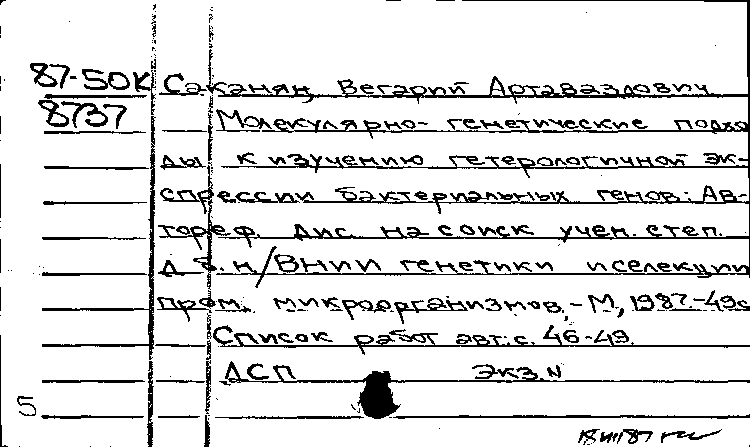 87-50к Саканян, Вегарий Артаваздович
8737 Молекулярно-генетические подхо
ды к изучению гетерологичной эк-
спрессии бактериальных генов: Ав-
тореф. дис. на соиск учен. степ.
д.б.н/ВНИИ генетики и селекции
пром. микроорганизмов, -М, 1987-49с
Список работ авт: с. 46-49.
ДСП экз. N
5